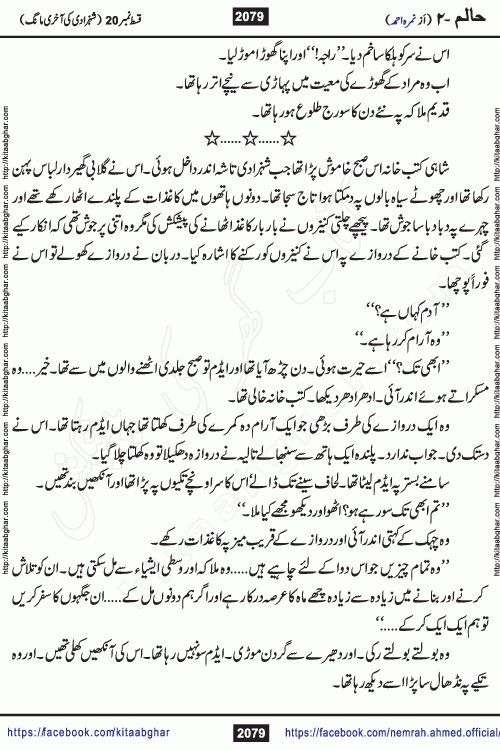 حالم ۔۲ (از نمرہ احمد)
2079
قسط نمبر 20 (شہزادی کی آخری مانگ)
اس نے سر کو ہلکا سا خم دیا۔ ’’راجہ!‘‘ اور اپنا گھوڑا موڑ لیا۔
اب وہ مراد کے گھوڑے کی معیت میں پہاڑی سے نیچے اتر رہا تھا۔
قدیم ملاکہ پہ نئے دن کا سورج طلوع ہو رہا تھا۔
☆......☆......☆
شاہی کتب خانہ اس صبح خاموش پڑا تھا جب شہزادی تاشہ اندر داخل ہوئی۔ اس نے گلابی گھیردار لباس پہن
رکھا تھا اور چھوٹے سیاہ بالوں پہ دمکتا ہوا تاج سجا تھا۔ دونوں ہاتھوں میں کاغذات کے پلندے اٹھا رکھے تھے اور
چہرے پہ دبا دبا سا جوش تھا۔ پیچھے چلتی کنیزوں نے بار بار کاغذ اٹھانے کی پیشکش کی مگر وہ اتنی پر جوش تھی کہ انکار کیے
گئی۔ کتب خانے کے دروازے پہ اس نے کنیزوں کو رکنے کا اشارہ کیا۔ دربان نے دروازے کھولے تو اس نے
فوراً پوچھا۔
’’آدم کہاں ہے؟‘‘
’’وہ آرام کر رہا ہے۔‘‘
’’ابھی تک؟‘‘ اسے حیرت ہوئی۔ دن چڑھ آیا تھا اور ایڈم تو صبح جلدی اٹھنے والوں میں سے تھا۔ خیر....وہ
مسکراتے ہوئے اندر آئی۔ ادھر ادھر دیکھا۔ کتب خانہ خالی تھا۔
وہ ایک دروازے کی طرف بڑھی جو ایک آرام دہ کمرے کی طرف کھلتا تھا جہاں ایڈم رہتا تھا۔ اس نے
دستک دی۔ جواب ندارد۔ پلندہ ایک ہاتھ سے سنبھالے تالیہ نے دروازہ دھکیلا تو وہ کھلتا چلا گیا۔
سامنے بستر پہ ایڈم لیٹا تھا۔ لحاف سینے تک ڈالے اس کا سر اونچے تکیوں پہ پڑا تھا اور آنکھیں بند تھیں۔
’’تم ابھی تک سو رہے ہو؟ اٹھو اور دیکھو مجھے کیا ملا۔‘‘
وہ چہک کے کہتی اندر آئی اور دروازے کے قریب میز پہ کاغذات رکھے۔
’’وہ تمام چیزیں جو اس دوا کے لئے چاہیے ہیں.....وہ ملاکہ اور وسطی ایشیاء سے مل سکتی ہیں۔ ان کو تلاش
کرنے اور بنانے میں زیادہ سے زیادہ چھے ماہ کا عرصہ درکار ہے اور اگر ہم دونوں مل کے.....ان جگہوں کا سفر کریں
تو ہم ایک ایک کر کے.....‘‘
وہ بولتے بولتے رکی۔ اور دھیرے سے گردن موڑی۔ ایڈم سو نہیں رہا تھا۔ اس کی آنکھیں کھلی تھیں۔ اور وہ
تکیے پہ نڈھال سا پڑا اسے دیکھ رہا تھا۔
https://facebook.com/kitaabghar
2079
https://facebook.com/nemrah.ahmed.official/
http://kitaabghar.com http://kitaabghar.com http://kitaabghar.com http://kitaabghar.com http://kitaabghar.com
http://kitaabghar.com http://kitaabghar.com http://kitaabghar.com http://kitaabghar.com http://kitaabghar.com